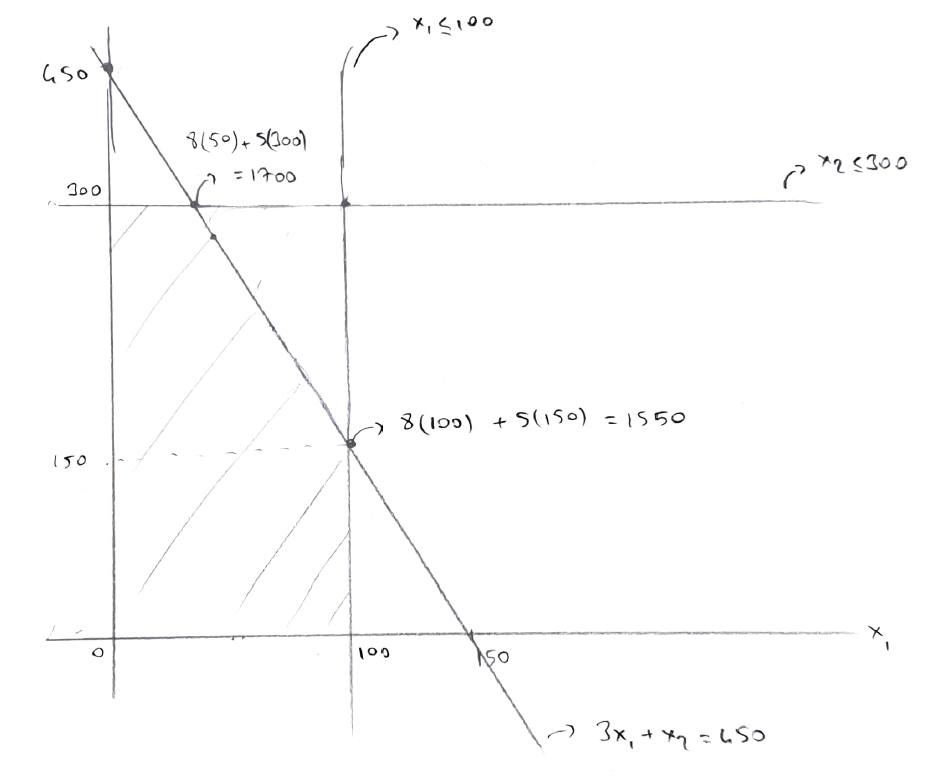 x₁ ≤ 100
450
8(50) + 5(300)
= 1700
x₂ ≤ 300
300
8(100) + 5(150) = 1550
150
x₁
0
100
150
3x₁ + x₂ = 450